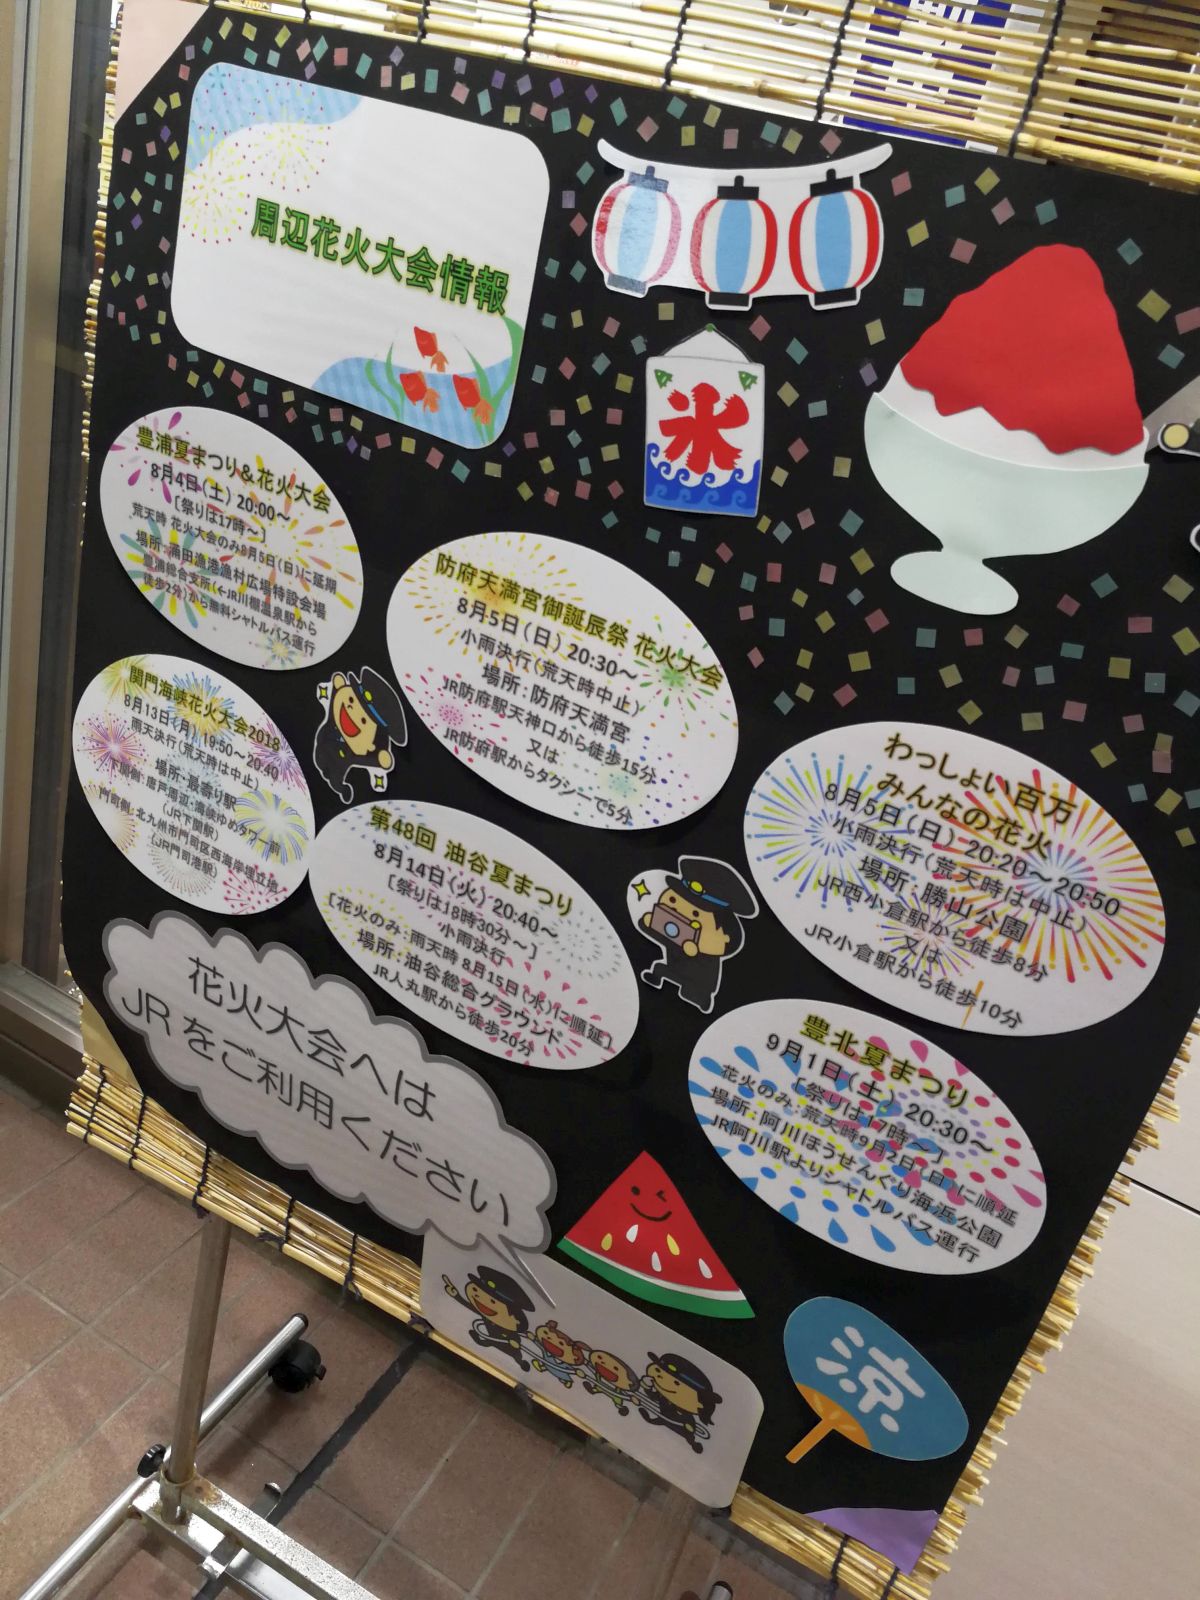 周辺花火大会情報
氷
豊浦夏まつり&花火大会
8月4日(土) 20:00~
[祭りは17時~]
荒天時 花火大会のみ8月5日(日)に延期
場所:涌田漁港漁村広場特設会場
豊浦総合支所(←JR川棚温泉駅から
徒歩2分)から無料シャトルバス運行
防府天満宮御誕辰祭 花火大会
8月5日(日) 20:30~
小雨決行(荒天時中止)
場所:防府天満宮
JR防府駅天神口から徒歩15分
又は
JR防府駅からタクシーで5分
関門海峡花火大会2018
8月13日(月) 19:50~20:40
雨天決行(荒天時は中止)
場所:最寄り駅
下関側:唐戸周辺・海峡ゆめタワー前
(JR下関駅)
門司側:北九州市門司区西海岸埋立地
(JR門司港駅)
第48回 油谷夏まつり
8月14日(火) 20:40~
[祭りは18時30分~]
小雨決行
[花火のみ:雨天時 8月15日(水)に順延]
場所:油谷総合グラウンド
JR人丸駅から徒歩20分
わっしょい百万
みんなの花火
8月5日(日) 20:20~20:50
小雨決行(荒天時は中止)
場所:勝山公園
JR西小倉駅から徒歩8分
又は
JR小倉駅から徒歩10分
豊北夏まつり
9月1日(土) 20:30~
[祭りは17時~]
花火のみ:荒天時9月2日(日)に順延
場所:阿川ほうせんぐり海浜公園
JR阿川駅よりシャトルバス運行
花火大会へは
JRをご利用ください
涼